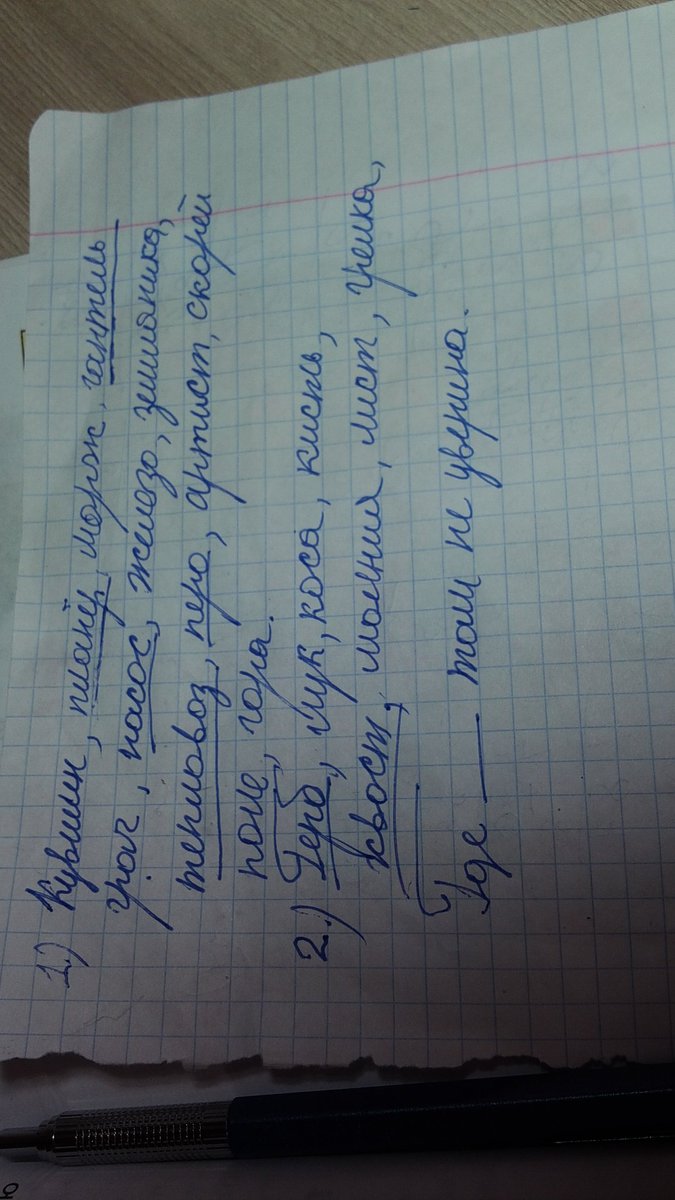 1.) Кувшин, плащ, морж, гантель
грач, насос, железо, земляника,
тепловоз, перо, артист, скорей
поле, гора.
2.) Герб, лук, коса, кисть,
хвост, молния, лист, грелка,
Где ___ там не уверена.
ю